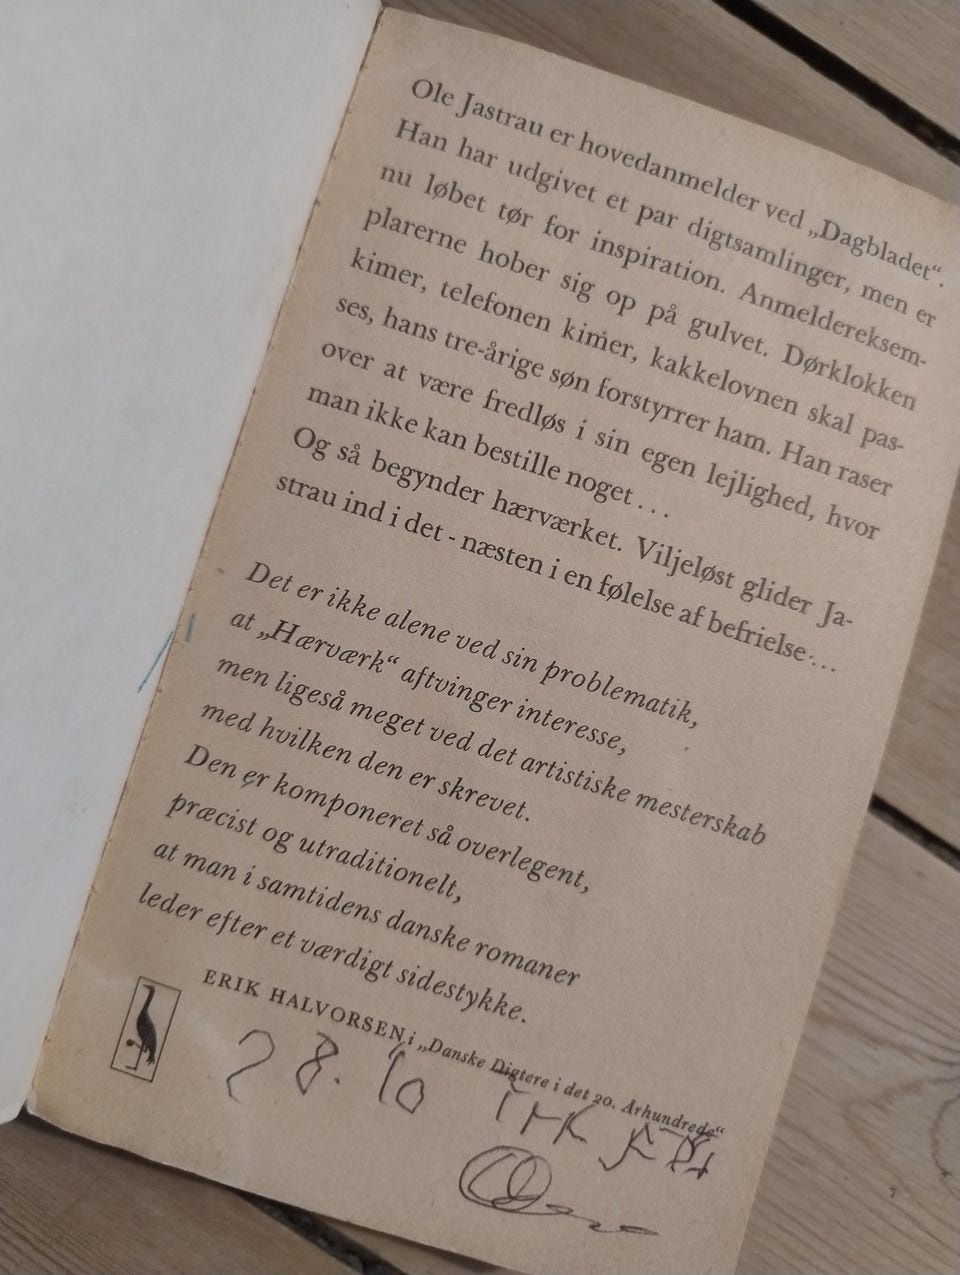 Ole Jastrau er hovedanmelder ved „Dagbladet“.
Han har udgivet et par digtsamlinger, men er
nu løbet tør for inspiration. Anmeldereksem-
plarerne hober sig op på gulvet. Dørklokken
kimer, telefonen kimer, kakkelovnen skal pas-
ses, hans tre-årige søn forstyrrer ham. Han raser
over at være fredløs i sin egen lejlighed, hvor
man ikke kan bestille noget...
Og så begynder hærværket. Viljeløst glider Ja-
strau ind i det - næsten i en følelse af befrielse...
Det er ikke alene ved sin problematik,
at „Hærværk“ aftvinger interesse,
men ligeså meget ved det artistiske mesterskab
med hvilken den er skrevet.
Den er komponeret så overlegent,
præcist og utraditionelt,
at man i samtidens danske romaner
leder efter et værdigt sidestykke.
ERIK HALVORSEN i „Danske Digtere i det 20. Århundrede“
28. 10